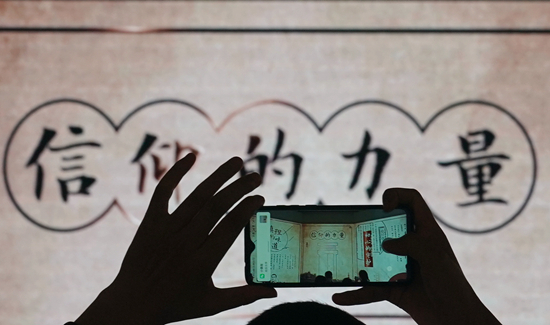 信仰的力量
信仰的力量